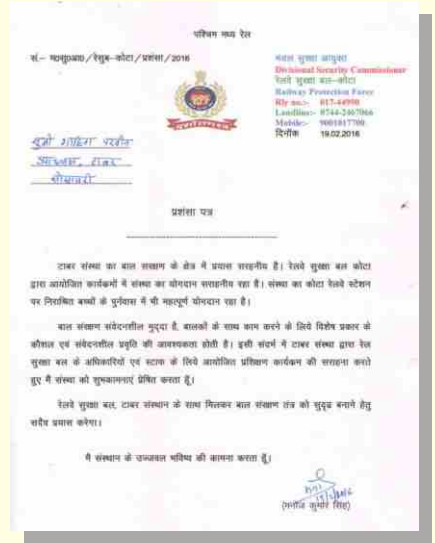 पश्चिम मध्य रेल
सं.– म०सु०आ०/रेसुब–कोटा/प्रशंसा/2016
मंडल सुरक्षा आयुक्त
Divisional Security Commissioner
रेलवे सुरक्षा बल–कोटा
Railway Protection Force
Rly no:- 017-44990
Landline:- 0744-2467066
Mobile:- 9001017700
दिनाँक 19.02.2016
सुश्री
अध्यक्ष, टाबर
सोसायटी
प्रशंसा पत्र
टाबर संस्था का बाल संरक्षण के क्षेत्र में प्रयास सराहनीय है। रेलवे सुरक्षा बल कोटा
द्वारा आयोजित कार्यकमों में संस्था का योगदान सराहनीय रहा है। संस्था का कोटा रेलवे स्टेशन
पर निराश्रित बच्चों के पुर्नवास में भी महत्वपूर्ण योगदान रहा है।
बाल संरक्षण संवेदनशील मुद्दा है, बालकों के साथ काम करने के लिये विशेष प्रकार के
कौशल एवं संवेदनशील प्रवृति की आवश्यकता होती है। इसी संदर्भ में टाबर संस्था द्वारा रेल
सुरक्षा बल के अधिकारियों एवं स्टाफ के लिये आयोजित प्रशिक्षण कार्यकम की सराहना करते
हुए मैं संस्था को शुभकामनाएं प्रेषित करता हूँ।
रेलवे सुरक्षा बल, टाबर संस्थान के साथ मिलकर बाल संरक्षण तंत्र को सुदृढ बनाने हेतु
सदैव प्रयास करेगा।
मैं संस्थान के उज्जवल भविष्य की कामना करता हूँ।
19/2/2016
(मनोज कुमार सिंह)